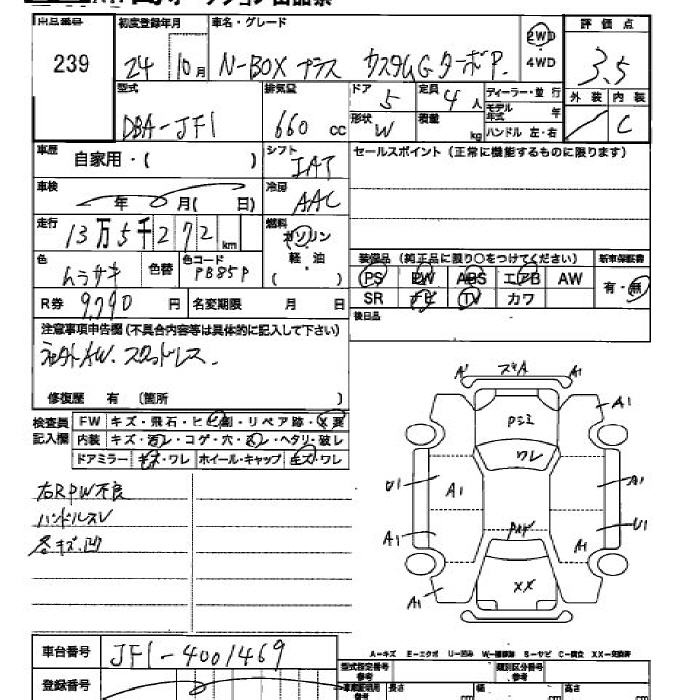 オークション出品票
出品番号 初度登録年月 車名・グレード 2WD 評価点
239 24年10月 N-BOX プラス カスタムG ターボP. 4WD 3.5
型式 排気量 ドア 定員 ディーラー・並行 外装 内装
DBA-JF1 660 cc 5 4人 モデル年式 年
形状 W 積載 kg ハンドル 左・右 C
車歴 自家用・( ) シフト IAT セールスポイント(正常に機能するものに限ります)
車検 年 月( 日) 冷房 AAC
走行 13万5千272km 燃料 ガソリン
色 ムラサキ 色替 色コード PB85P 軽・油 装備品(純正品に限り○をつけてください) 新車保証書
PS PW ABS エアB AW 有・無
R券 9,790円 名変期限 月 日 SR ナビ TV カワ
後日品
注意事項申告欄(不具合内容等は具体的に記入して下さい)
AW. スタッドレス.
修復歴 有 (箇所 )
検査員 FW キズ・飛石・ヒビ割・リペア跡・X裏
記入欄 内装 キズ・汚レ・コゲ・穴・ ・ヘタリ・破レ
ドアミラー キズ・ワレ ホイール・キャップ キズ・ワレ
右RPW不良
ハンドルスレ
各キズ.凹
A1 スキA A1
A1
ワレ
U1 A1 A1
U1
A1 A1
XX
A1
車台番号 JF1-4001469
A-キズ E-エクボ U-凹み W-補修跡 S-サビ C-腐食 XX-交換済
型式指定番号 参考 類別区分番号 参考
登録番号 車庫証明用 参考 長さ cm 幅 cm 高さ cm